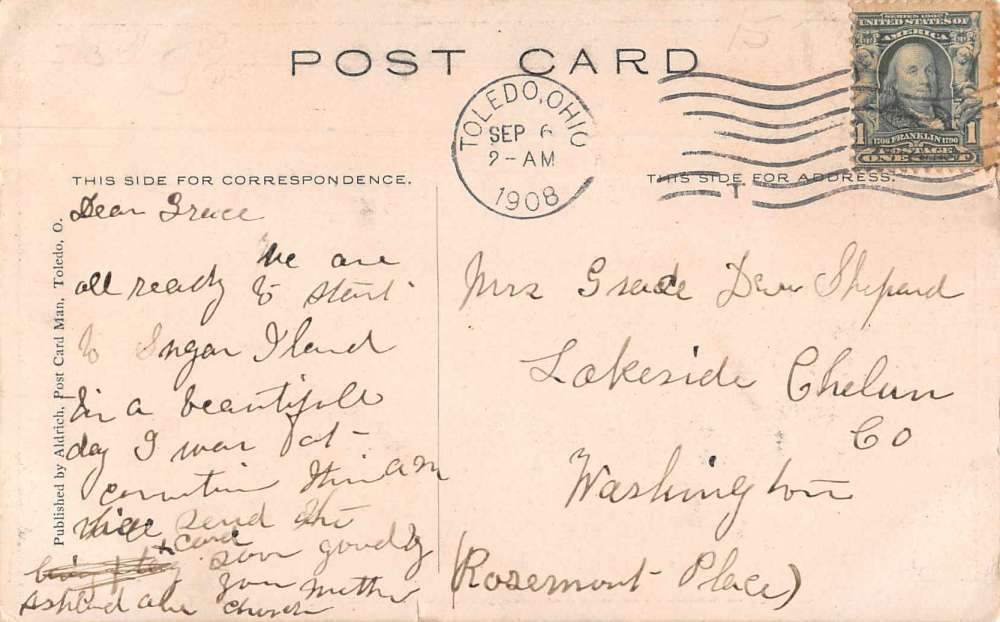 POST CARD
SERIES 1902
UNITED STATES OF
AMERICA
1 1706 FRANKLIN 1790 1
POSTAGE
ONE CENT
TOLEDO, OHIO
SEP 6
2-AM
1908
T
THIS SIDE FOR CORRESPONDENCE.
THIS SIDE FOR ADDRESS.
Published by Aldrich, Post Card Man, Toledo, O.
Dear Grace
We are
all ready to start
to Sugar Iland
a beautifull
day I was at
send
card soon good by
your Mother
church
Mrs Grace Shepard
Lakeside Chelan
Co
Washington
(Rosemont Place)